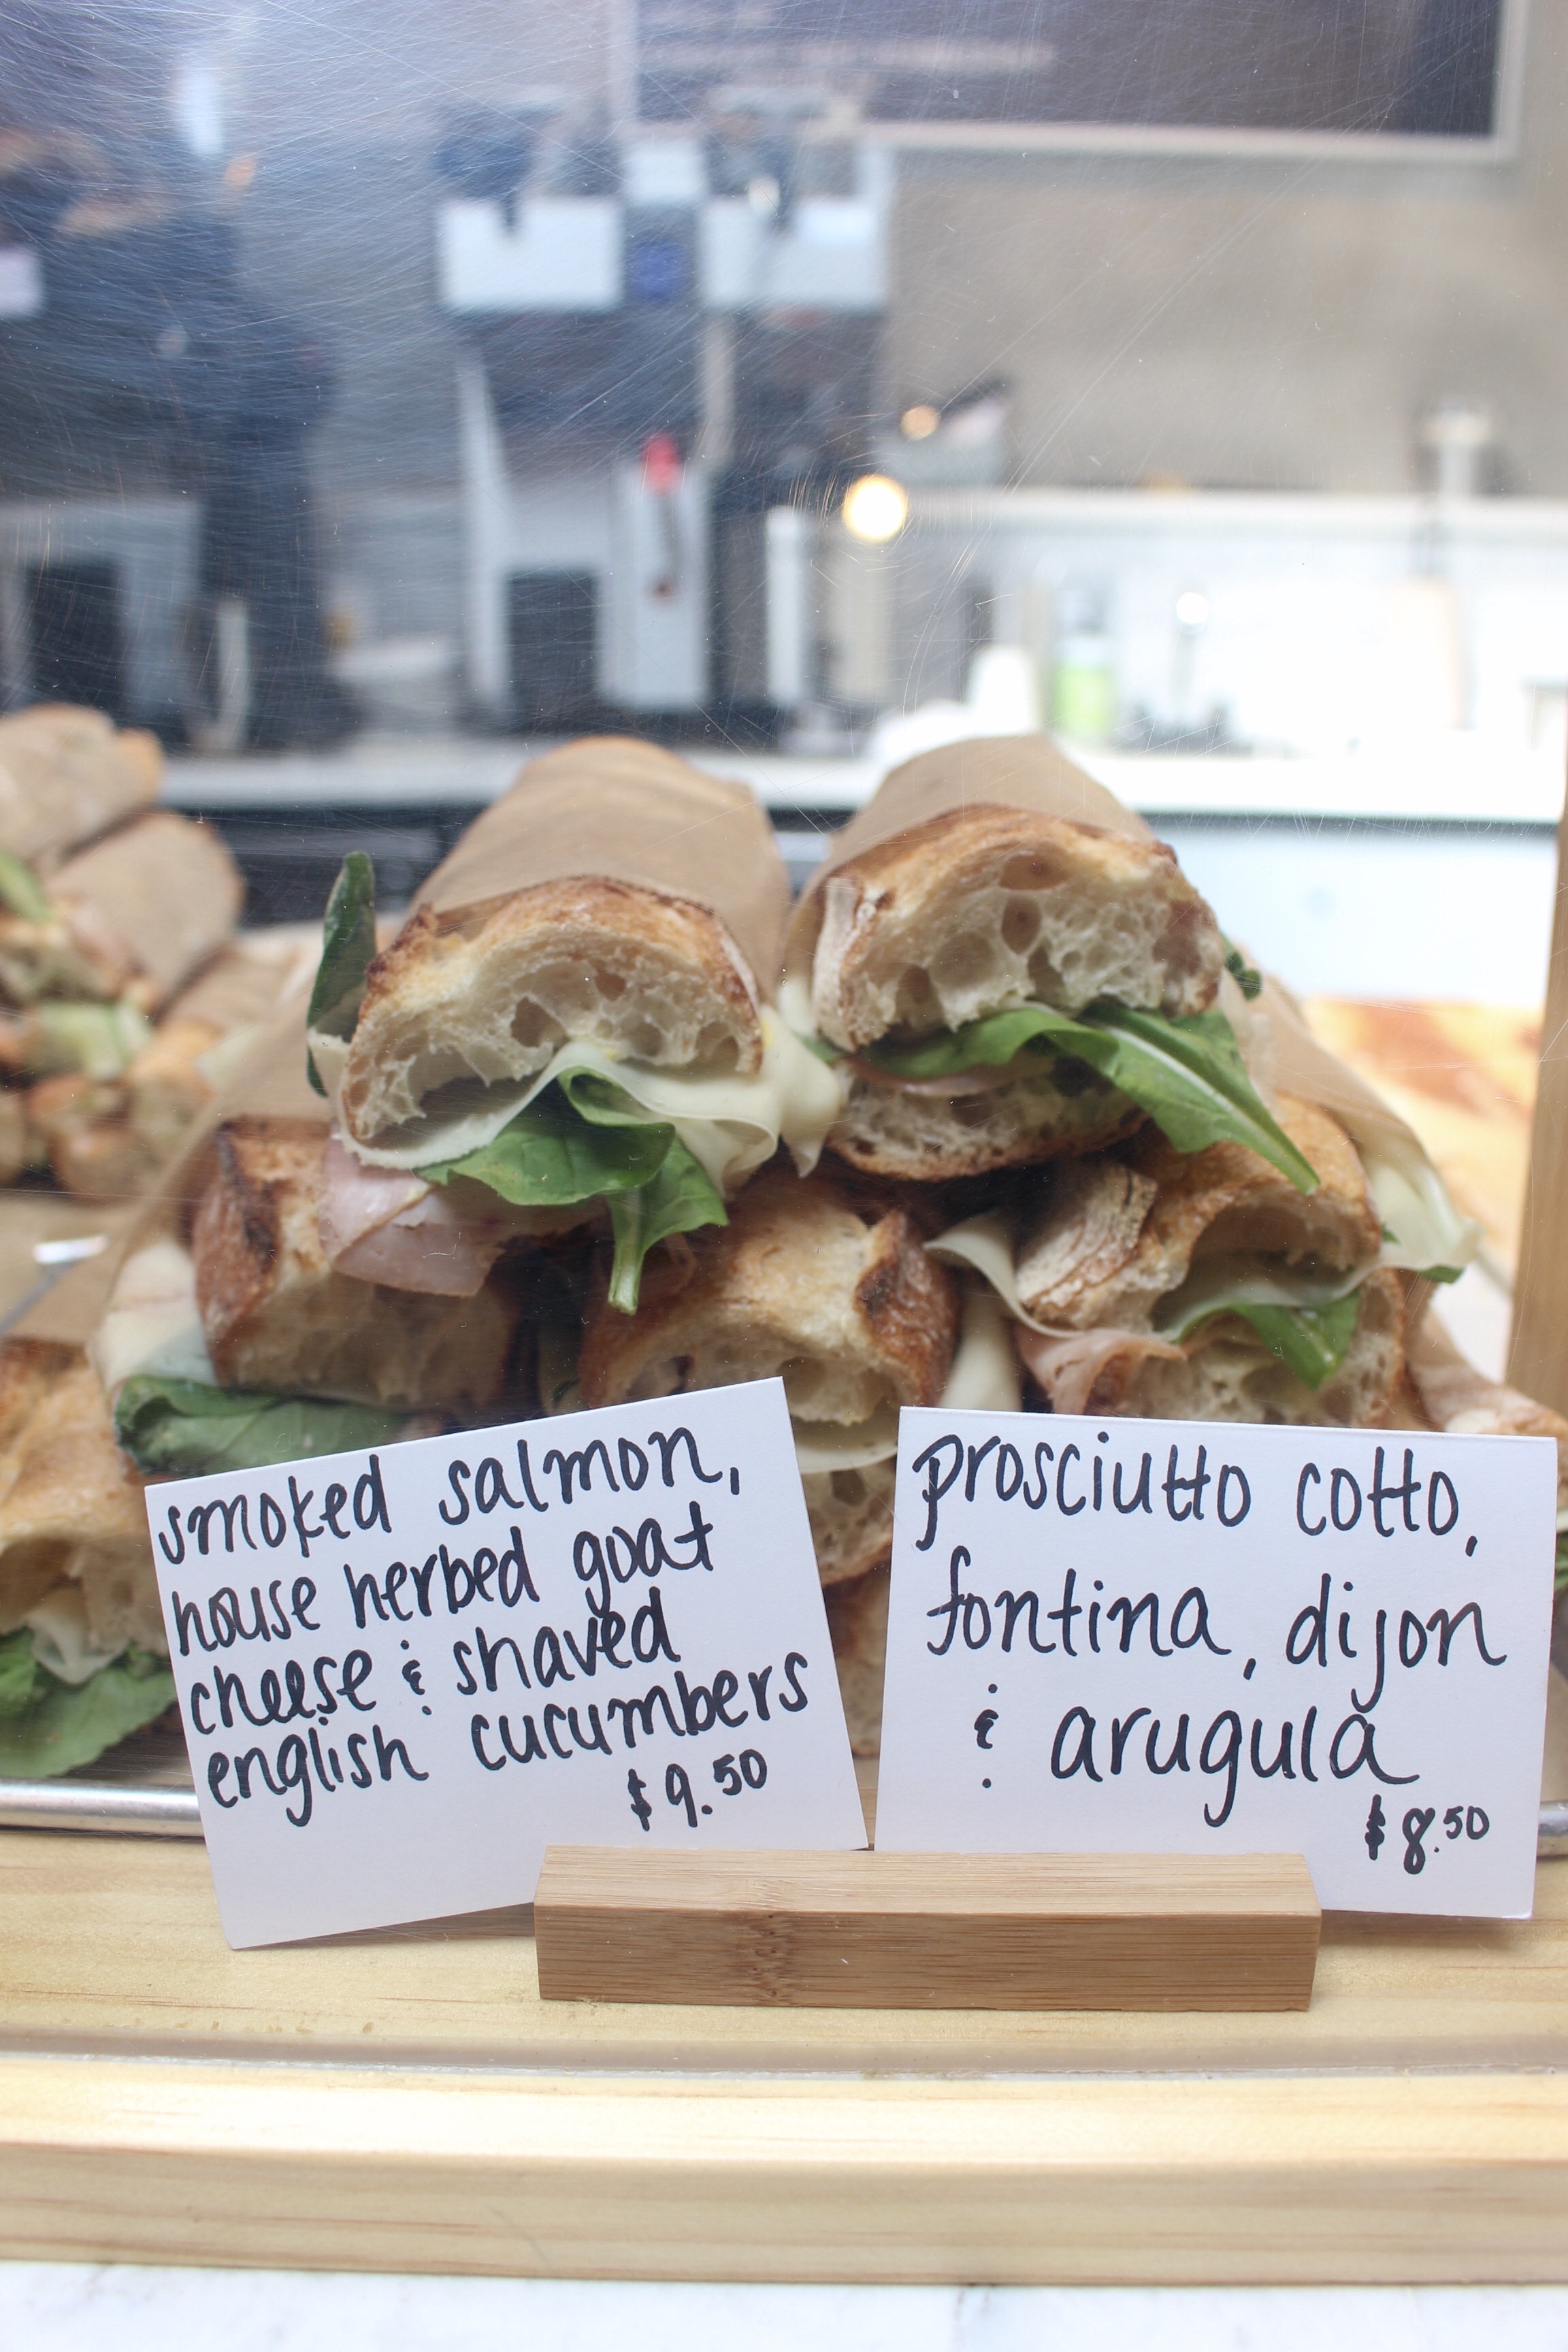 smoked salmon,
house herbed goat
cheese & shaved
english cucumbers
$9.50
prosciutto cotto,
fontina, dijon
& arugula
$8.50